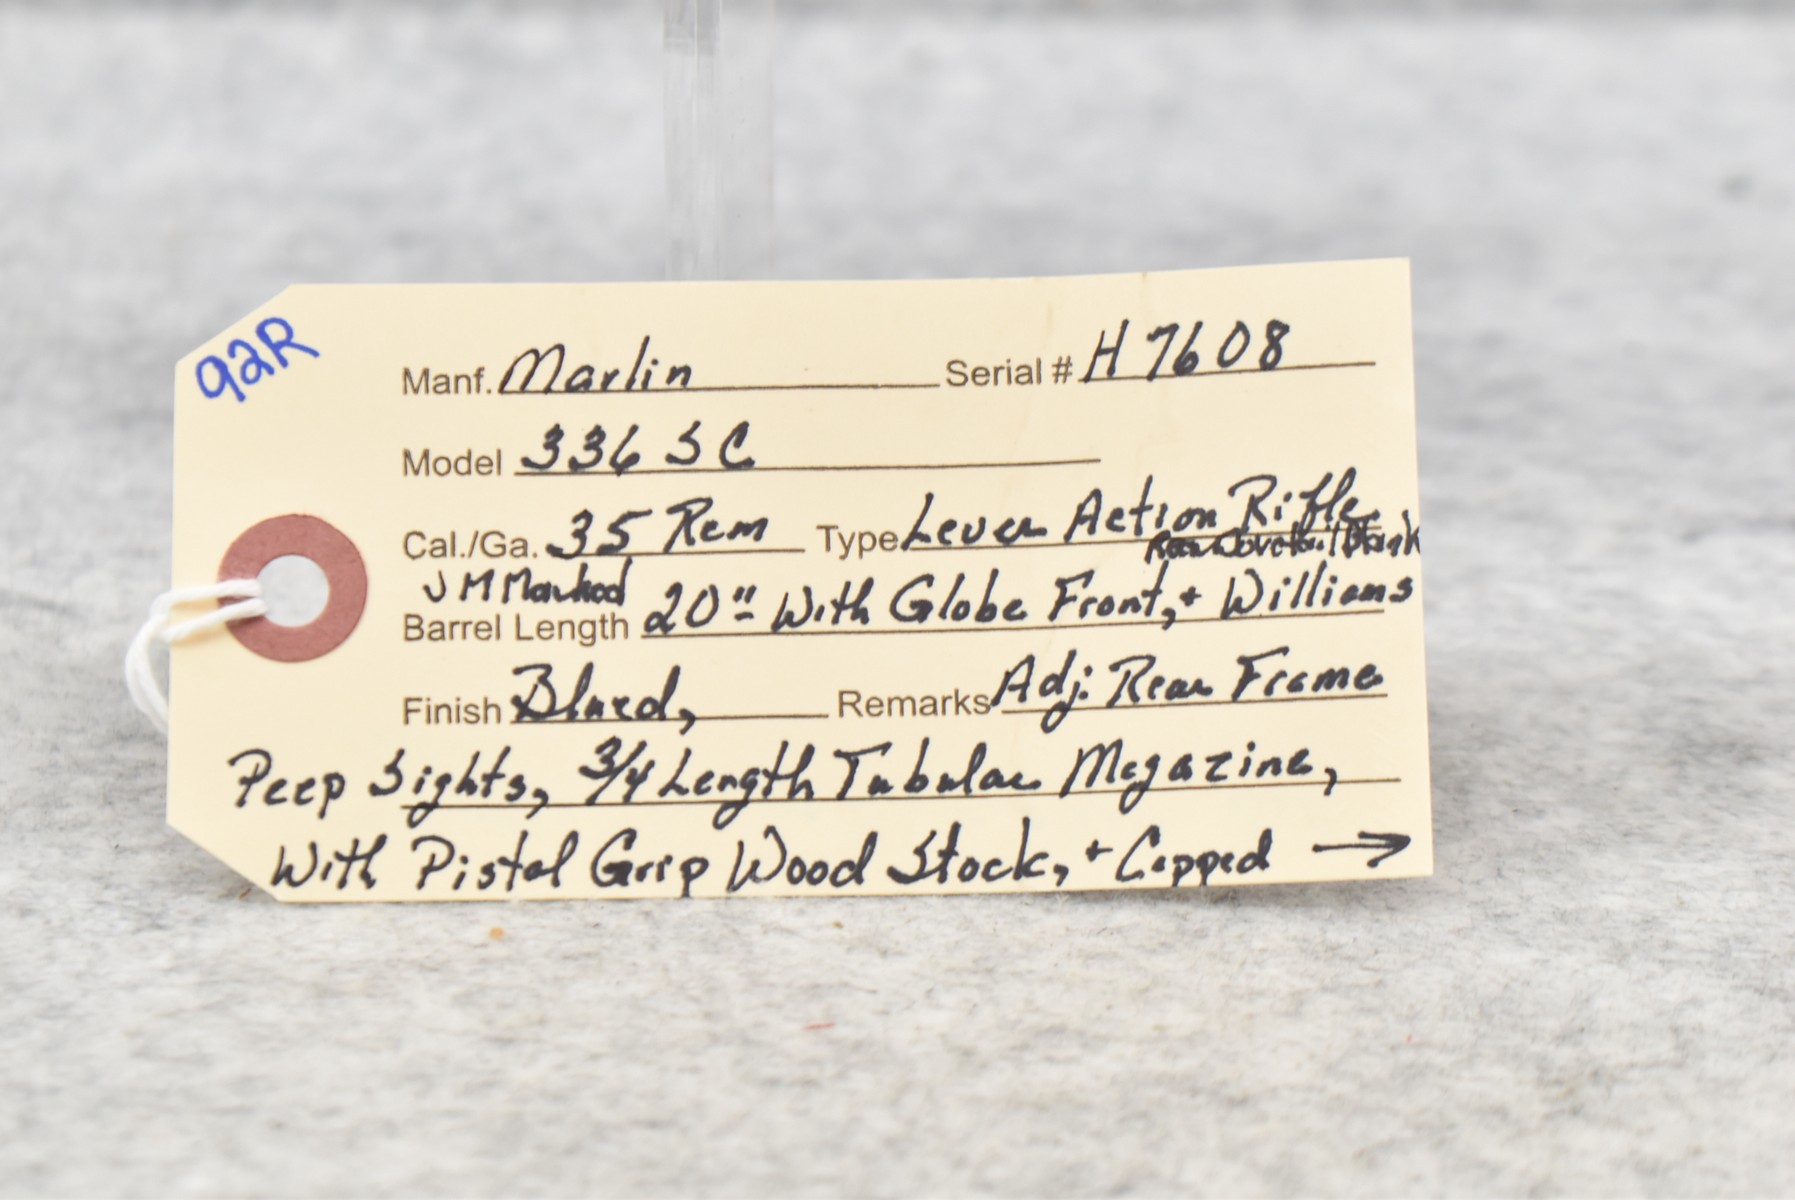 92R
Manf. Marlin Serial # H7608
Model 336 SC
Cal./Ga. 35 Rem Type Lever Action Rifle
Rear Dovetail Blank
JM Marked
Barrel Length 20" With Globe Front, + Williams
Finish Blued, Remarks Adj. Rear Frame
Peep Sights, 3/4 Length Tubular Magazine,
With Pistol Grip Wood Stock, + Capped →